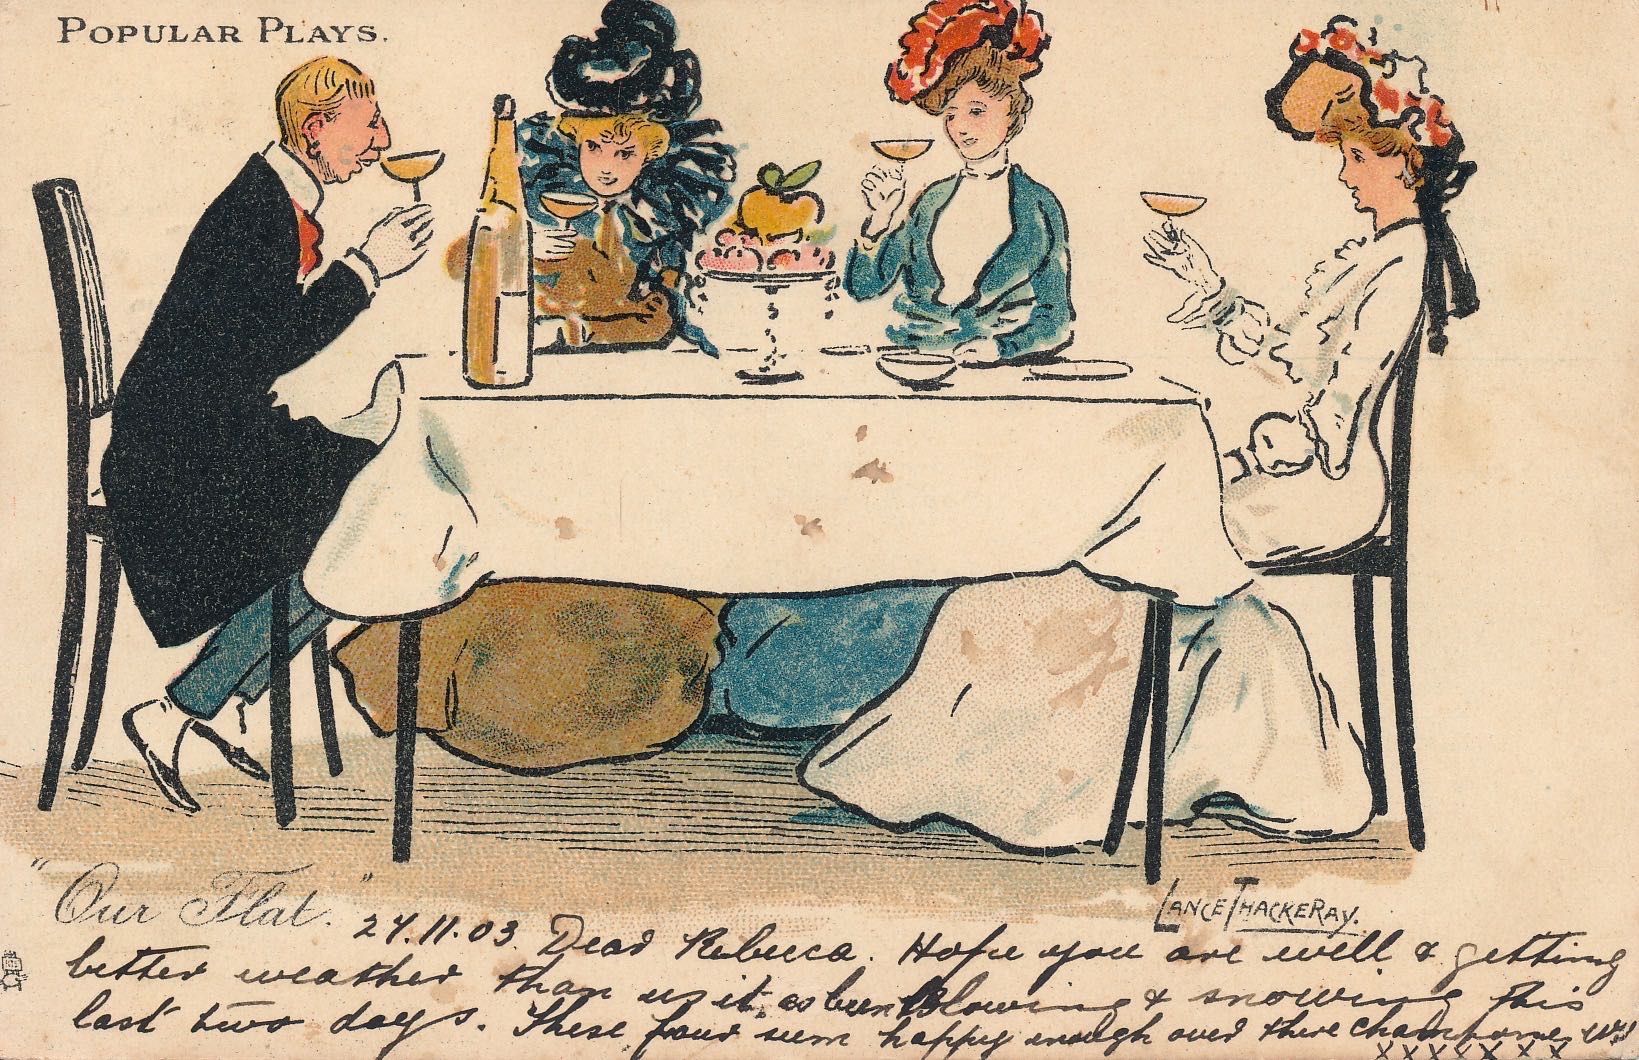 POPULAR PLAYS.
"Our Flat."
LANCE THACKERAY.
24.11.03. Dear Rebecca. Hope you are well & getting
better weather than us it as been Blowing & snowing this
last two days. These four seem happy enough over there champagne
x x x x x x x x